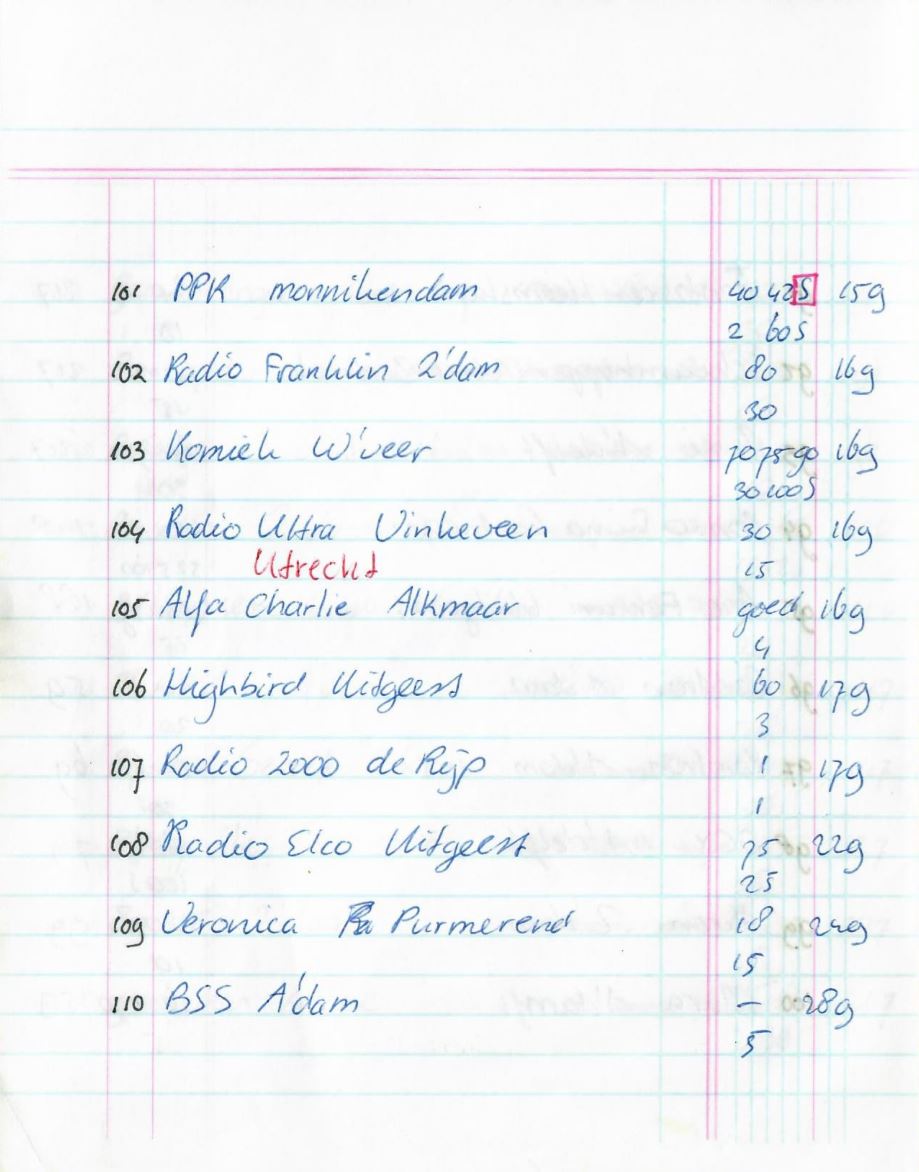 101 PPK monnikendam 40 42 S 159
2 60 S
102 Radio Franklin Z'dam 80 169
30
103 Komiek W'veer 70 75 90 169
30 100 S
104 Radio Ultra Vinkeveen 30 169
Utrecht 15
105 Alfa Charlie Alkmaar goed 169
4
106 Highbird Uitgeest 60 179
3
107 Radio 2000 de Rijp 1 179
1
108 Radio Elco Uitgeest 75 229
25
109 Veronica Purmerend 18 249
15
110 BSS A'dam – 289
5